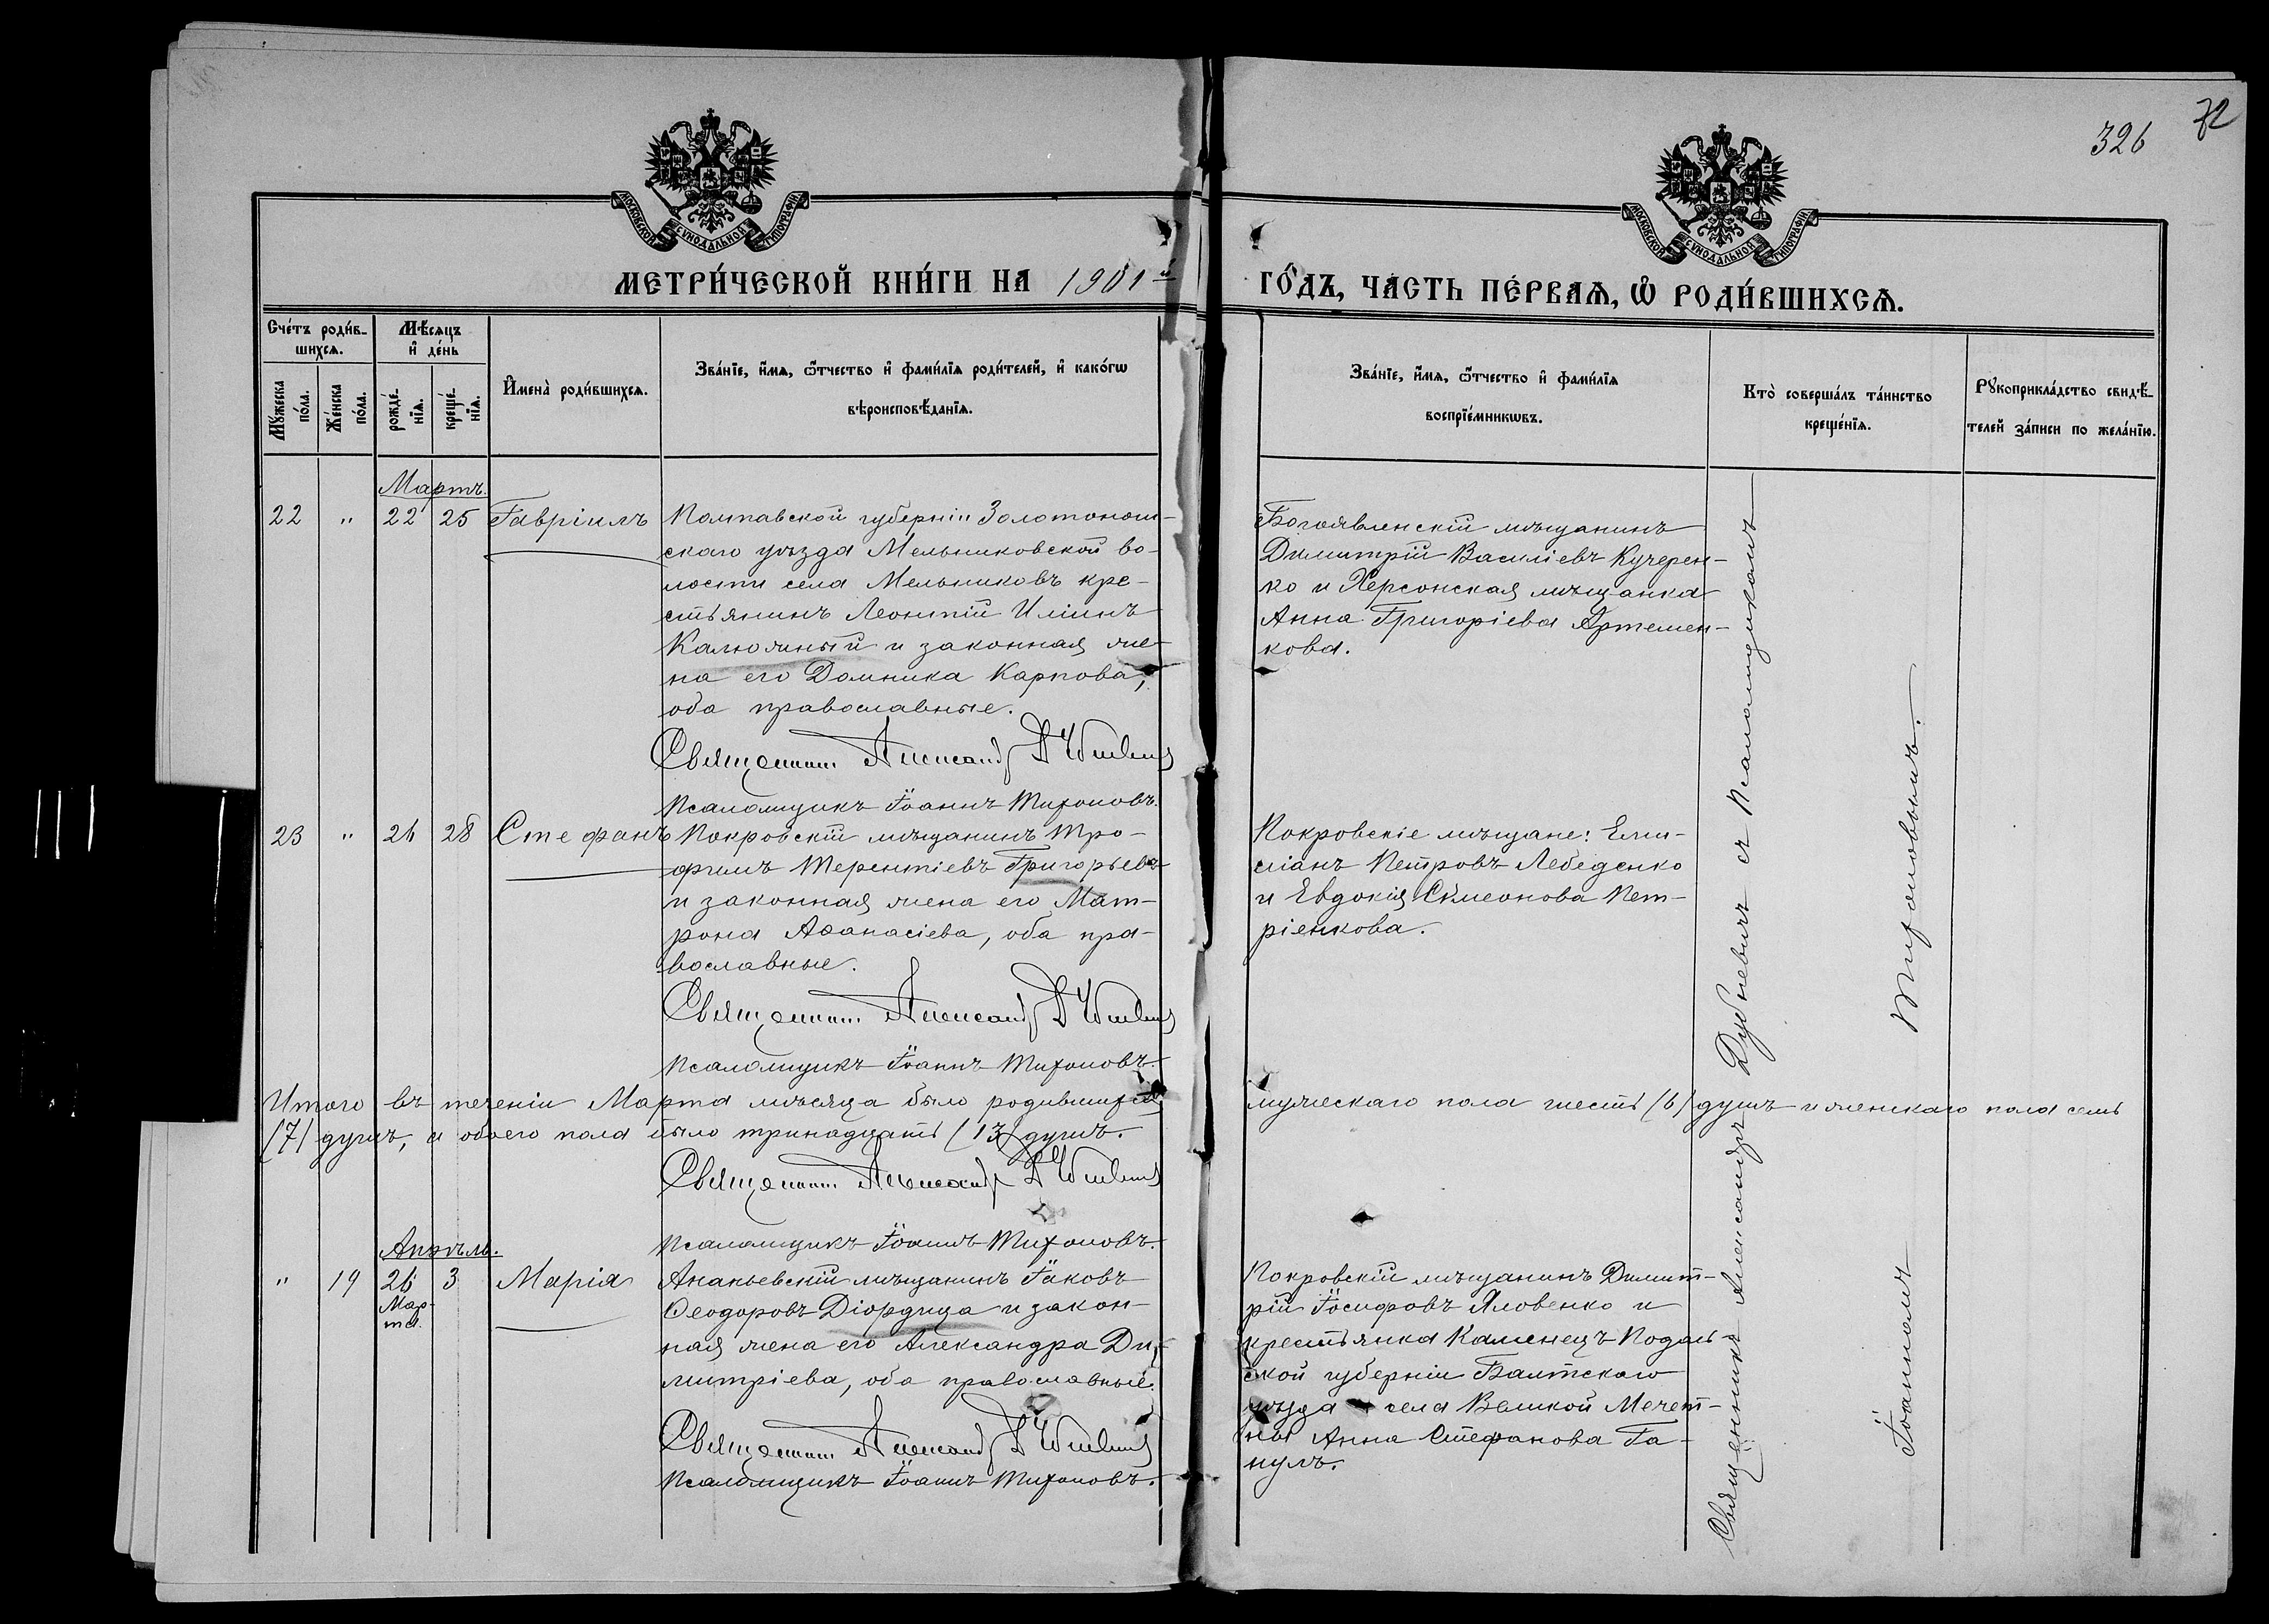 326
72
МОСКОВСКОЙ СѴНОДАЛЬНОЙ ТИПОГРАФІИ
МОСКОВСКОЙ СѴНОДАЛЬНОЙ ТИПОГРАФІИ
МЕТРИ́ЧЕСКОЙ КНИ́ГИ НА 1901й
ГО́ДЪ, ЧА́СТЬ ПЕ́РВАѦ, Ѡ҆ РОДИ́ВШИХСѦ.
Сче́тъ роди́в-
шихсѧ.
Мꙋ́жеска по́ла.
Же́нска по́ла.
Мѣ́сяцъ
и҆ де́нь
рожде́-
нїѧ.
креще́-
нїѧ.
И҆мена̀ роди́вшихсѧ.
Зва́нїе, и҆́мѧ, ѻ҆́тчество и҆ фами́лїѧ роди́телей, и҆ како́гѡ
вѣроисповѣ́данїѧ.
Зва́нїе, и҆́мѧ, ѻ҆́тчество и҆ фами́лїѧ
воспрїе́мникѡвъ.
Кто̀ соверша́лъ та́инство
креще́нїѧ.
Рꙋкоприкла́дство свидѣ́-
телей за́писи по жела́нїю.
Мартъ.
22 " 22 25 Гавріилъ
Полтавской губерніи Золотонош-
скаго уѣзда Мельниковской во-
лости села Мельниковъ кре-
стьянинъ Леонтій Иліинъ
Калюжный и законная же-
на его Домника Карпова,
оба православные.
Священникъ Александръ Дубневичъ
Псаломщикъ Іоаннъ Тихоновъ.
Богоявленскій мѣщанинъ
Димитрій Василіевъ Кучерен-
ко и Херсонская мѣщанка
Анна Григоріева Артемен-
кова.
23 " 26 28 Стефанъ
Покровскій мѣщанинъ Тро-
фимъ Терентіевъ Григорьевъ
и законная жена его Мат-
рона Аѳанасіева, оба пра-
вославные.
Священникъ Александръ Дубневичъ
Псаломщикъ Іоаннъ Тихоновъ.
Покровскіе мѣщане: Еми-
ліанъ Петровъ Лебеденко
и Евдокія Симеонова Пет-
ріенкова.
Итого въ теченіи Марта мѣсяца было родившихся мужескаго пола шесть (6) душъ и женскаго пола семь
(7) душъ, а обоего пола было тринадцать (13) душъ.
Священникъ Александръ Дубневичъ
Псаломщикъ Іоаннъ Тихоновъ.
Апрѣль.
" 19 26 3 Марія
Мар-
та.
Ананьевскій мѣщанинъ Іаковъ
Ѳеодоровъ Діордица и закон-
ная жена его Александра Ди-
митріева, оба православные.
Священникъ Александръ Дубневичъ
Псаломщикъ Іоаннъ Тихоновъ.
Покровскій мѣщанинъ Димит-
рій Іосифовъ Яловенко и
крестьянка Каменецъ Подоль-
ской губерніи Балтскаго
уѣзда села Великой Мечет-
ны Анна Стефанова Га-
нулъ.
Священникъ Александръ Дубневичъ съ Псаломщикомъ
Іоанномъ Тихоновымъ.